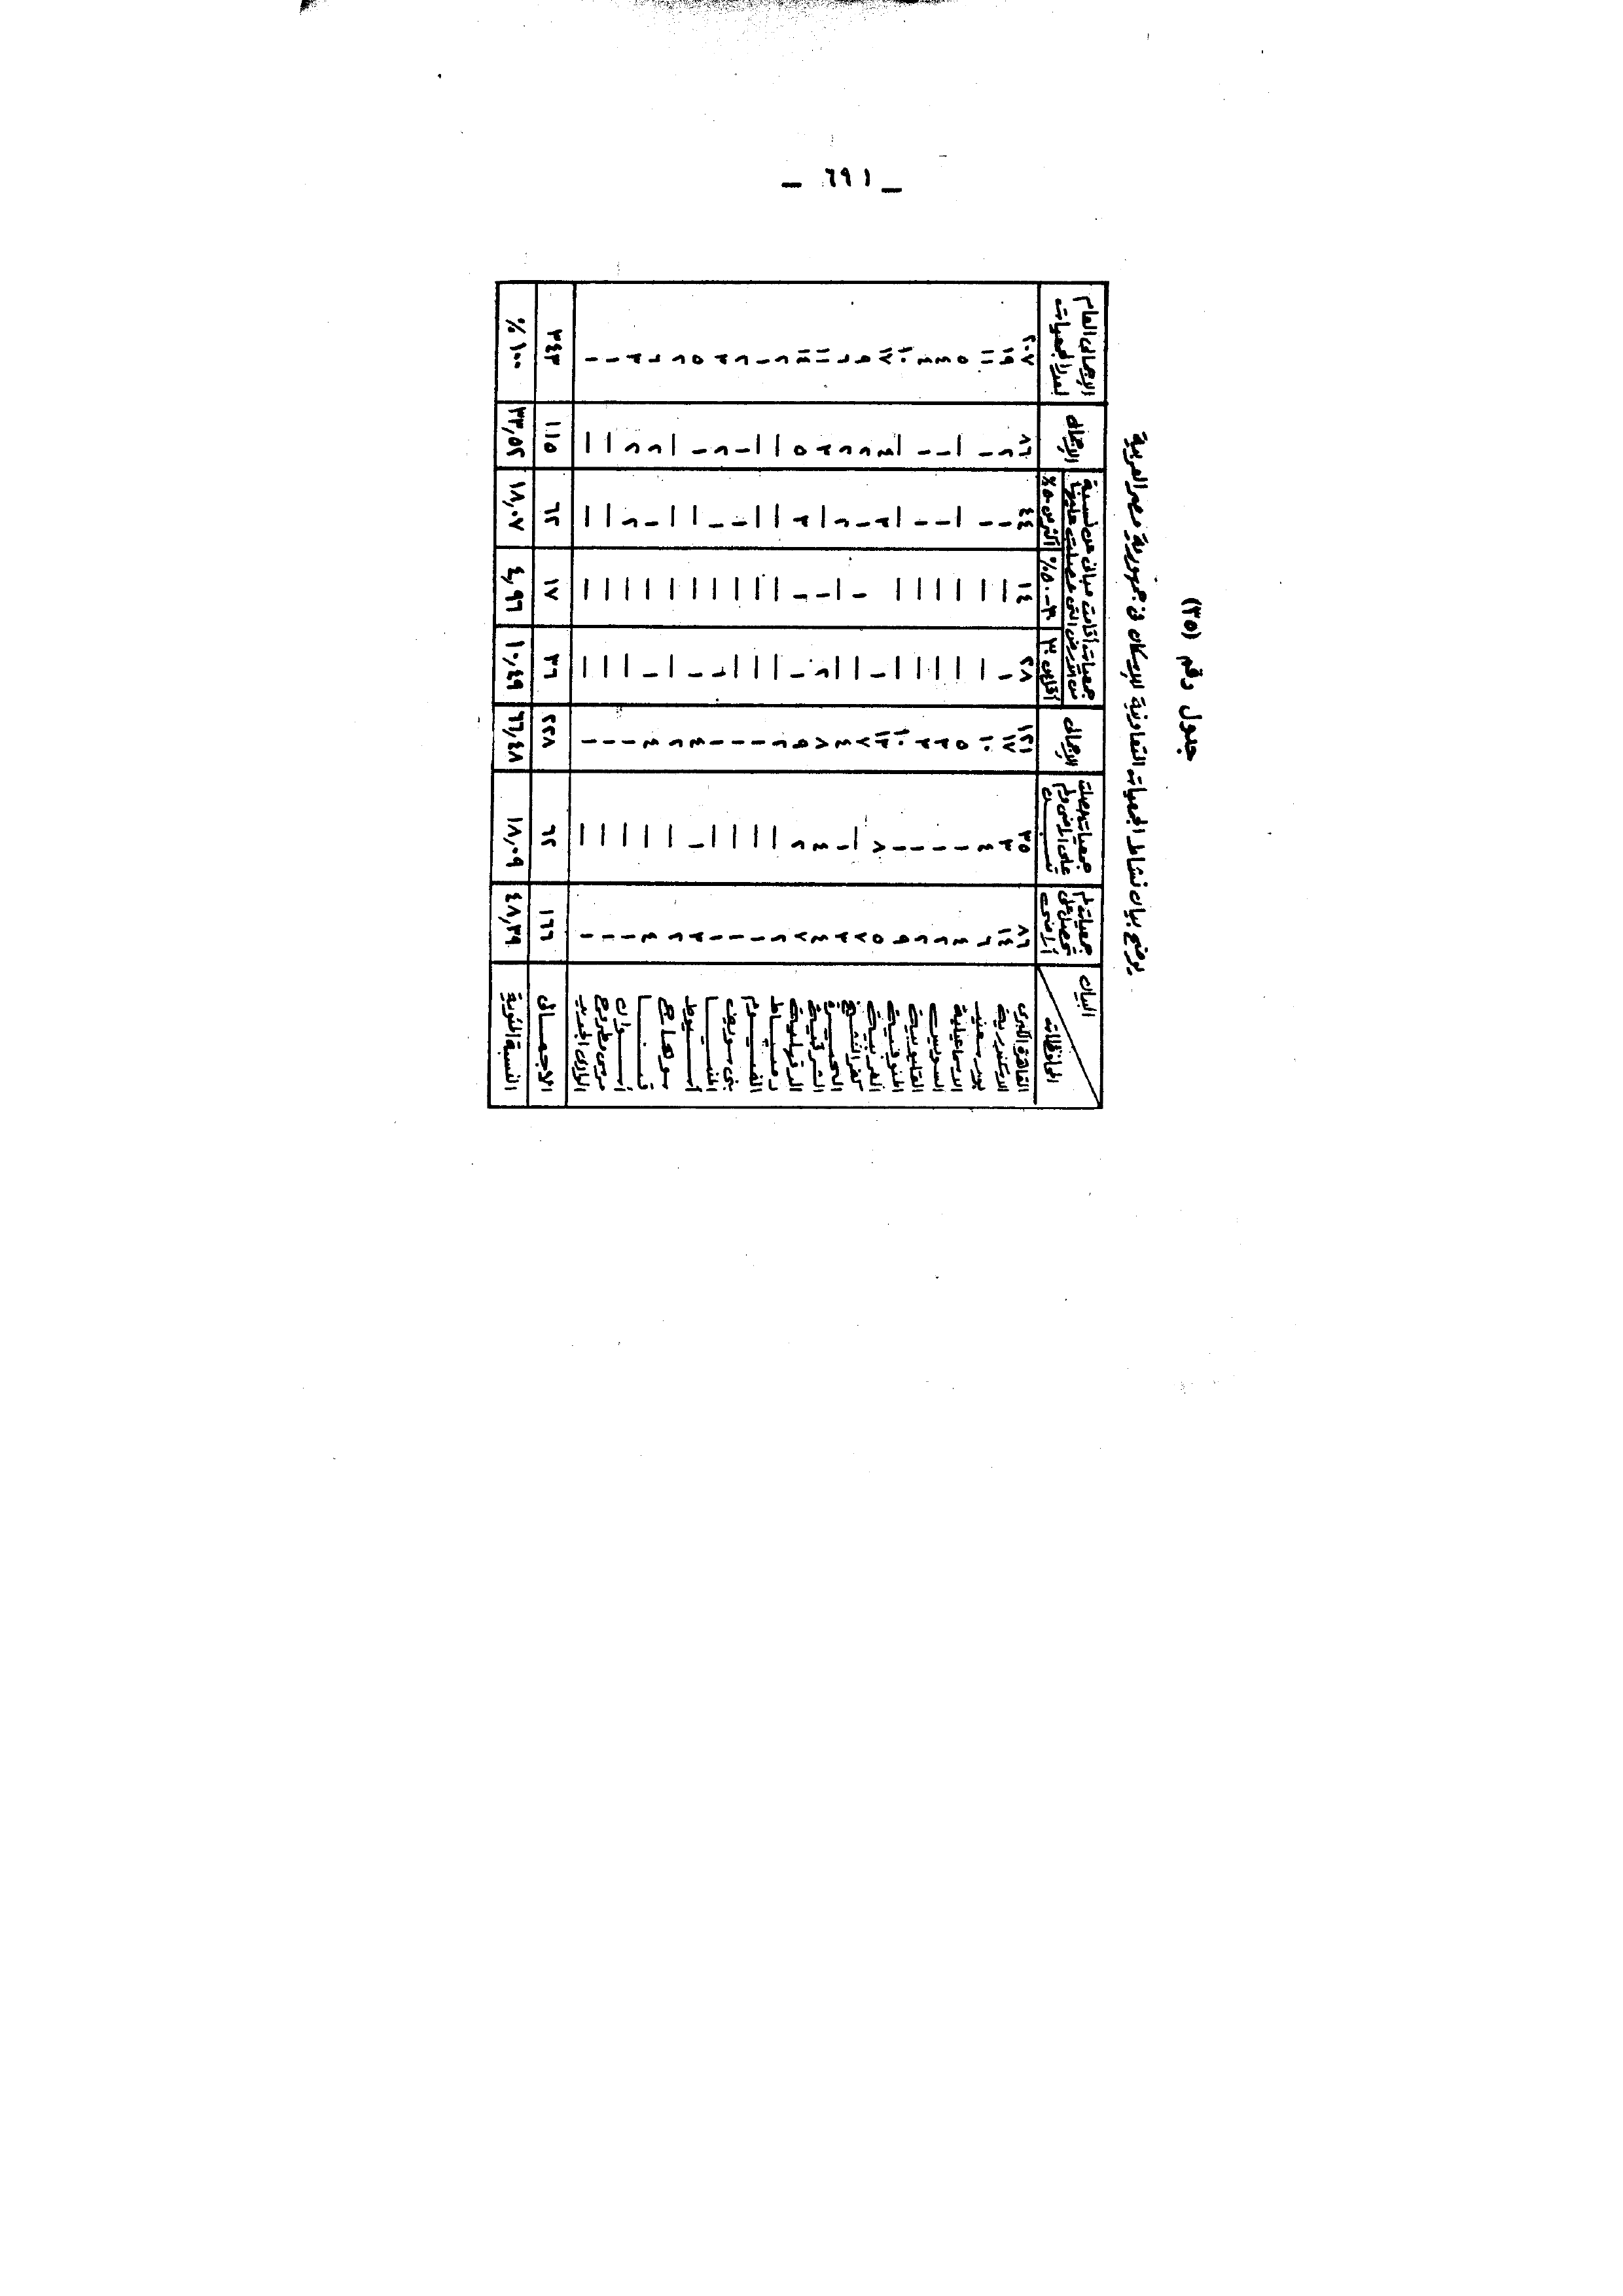 _ ٦٩١ _
جدول رقم (٣٥)
يوضح بيان نشاط الجمعيات التعاونية للإسكان فى جمهورية مصر العربية
البيان
المحافظات
جمعيات لم تحصل على أراضى
جمعيات حصلت على أراضى ولم تبن
الإجمالى
جمعيات أقامت مبانى عن نسبة من الأرض التى حصلت عليها
أقل من ٣٠
٣٠ - ٥٠٪
أكثر من ٥٠٪
الإجمالى
الإجمالى العام لعدد الجمعيات
القاهرة الكبرى ٨٦ ٣٥ ١٢١ ٢٨ ١٤ ٤٤ ٨٦ ٢٠٧
الاسكندرية ١٤ ٣ ١٧ ١ — ١ ٢ ١٩
بورسعيد ٦ ٤ ١٠ — — ١ ١ ١١
الاسماعيلية ٤ ١ ٥ — — — — ٥
السويس ٢ ١ ٣ — — ١ ١ ٤
القليوبية ٢ ١ ٣ — — ١ ١ ٤
المنوفية ٩ ١ ١٠ — — — — ١٠
الغربية ٥ ٨ ١٣ ١ — ٣ ٤ ١٧
كفر الشيخ ٧ — ٧ — ١ ١ ٢ ٩
البحيرة ٣ ١ ٤ — — ٢ ٢ ٦
الشرقية ٤ ٤ ٨ ٢ ١ — ٣ ١١
الدقهلية ٧ ٢ ٩ ١ ١ ٣ ٥ ١٤
دمياط ٢ — ٢ — — — — ٢
الفيوم ١ — ١ — — — — ١
بنى سويف ١ — ١ — — ١ ١ ٢
المنيا ١ — ١ ١ — ١ ٢ ٣
أسيوط ٣ ١ ٤ ١ — — ١ ٥
سوهاج ٢ — ٢ — — — — ٢
قنا ٤ — ٤ ١ — ١ ٢ ٦
أسوان ١ — ١ — — ٢ ٢ ٣
مرسى مطروح ١ — ١ — — — — ١
الوادى الجديد ١ — ١ — — — — ١
الاجمالى ١٦٦ ٦٢ ٢٢٨ ٣٦ ١٧ ٦٢ ١١٥ ٣٤٣
النسبة المئوية ٤٨,٣٩ ١٨,٠٩ ٦٦,٤٨ ١٠,٤٩ ٤,٩٦ ١٨,٠٧ ٣٣,٥٢ ١٠٠ %